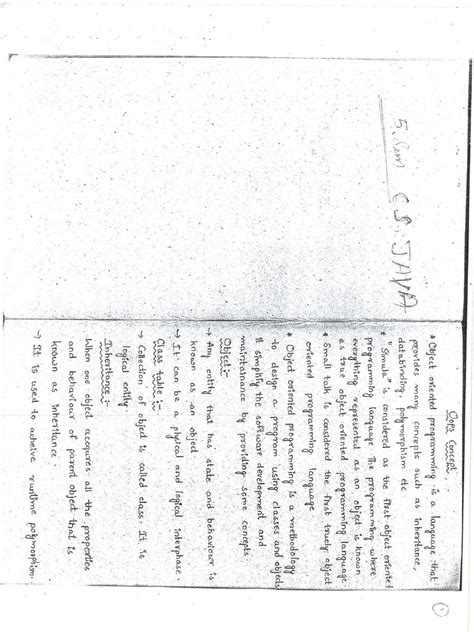 5. Sem CS. JAVA
1
Oops Concept
* Object oriented programming is a language that
provides many concepts such as inheritance,
databinding, polymorphism etc
* "Simula" is considered as the first object oriented
programming language. The programming where
everything represented as an object is known
as true object oriented programming language
* Small talk is considered the first truely object
oriented programming language
* Object oriented programming is a methodology
to design a program using classes and objects
it simplify the software development and
maintainance by providing some concepts
Object :-
→ Any entity that has state and behaviour is
known as an object
→ It can be a phycal and logical interphase
Class table :-
→ Collection of object is called class It is
logical entity
Inheritance :-
When one object accqures all the properties
and behaviour of parent object that is
known as inheritance.
→ It is used to achive runtime polymorphism.